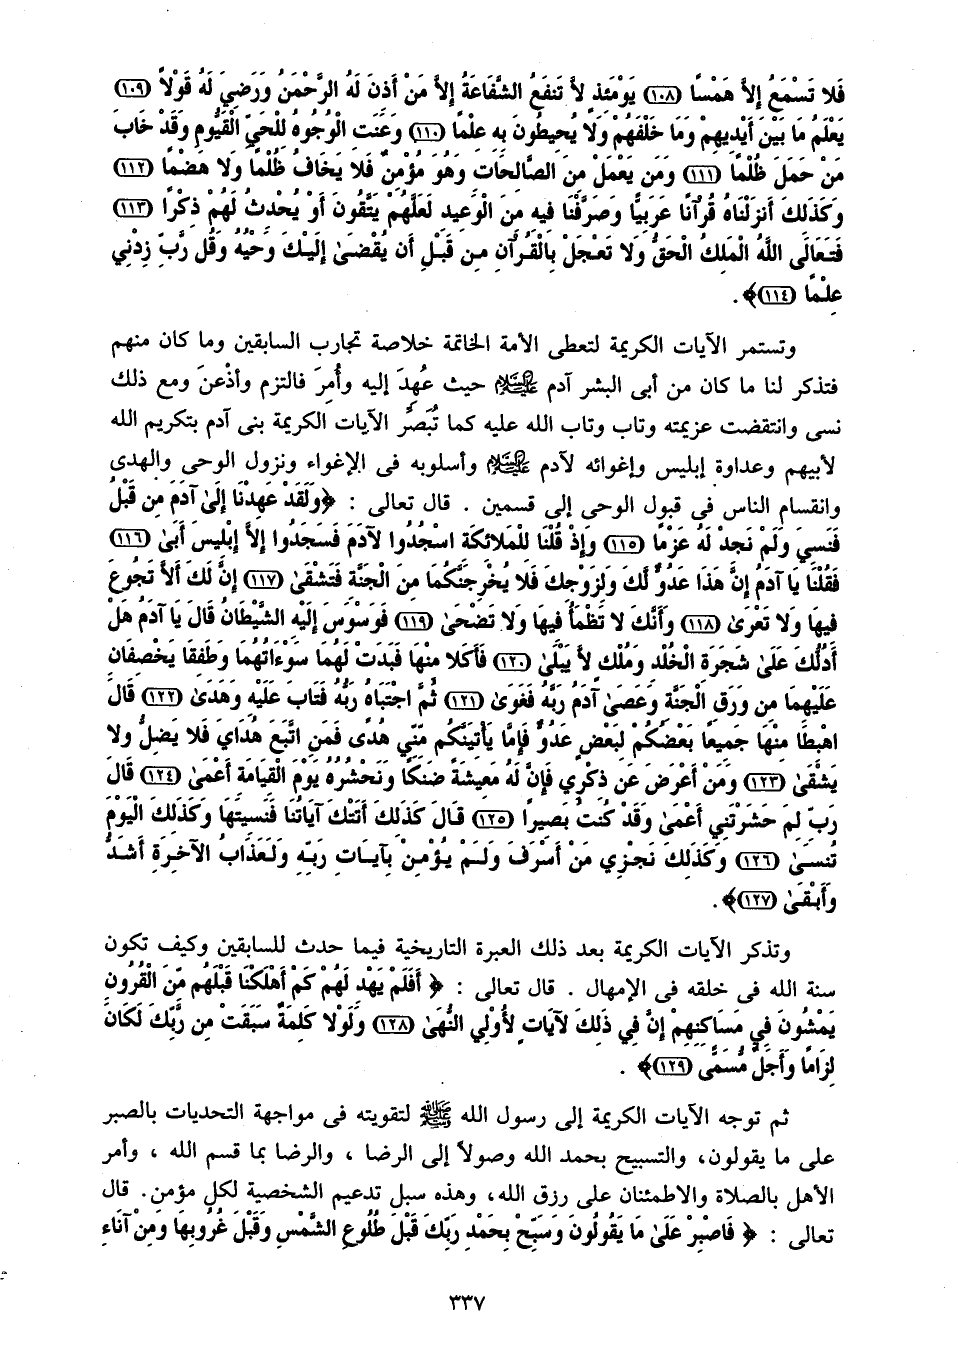 فَلا تَسْمَعُ إِلاَّ هَمْسًا (١٠٨) يَوْمَئِذٍ لاَّ تَنفَعُ الشَّفَاعَةُ إِلاَّ مَنْ أَذِنَ لَهُ الرَّحْمَنُ وَرَضِيَ لَهُ قَوْلاً (١٠٩)
يَعْلَمُ مَا بَيْنَ أَيْدِيهِمْ وَمَا خَلْفَهُمْ وَلا يُحِيطُونَ بِهِ عِلْمًا (١١٠) وَعَنَتِ الْوُجُوهُ لِلْحَيِّ الْقَيُّومِ وَقَدْ خَابَ
مَنْ حَمَلَ ظُلْمًا (١١١) وَمَن يَعْمَلْ مِنَ الصَّالِحَاتِ وَهُوَ مُؤْمِنٌ فَلا يَخَافُ ظُلْمًا وَلا هَضْمًا (١١٢)
وَكَذَلِكَ أَنزَلْنَاهُ قُرْآنًا عَرَبِيًّا وَصَرَّفْنَا فِيهِ مِنَ الْوَعِيدِ لَعَلَّهُمْ يَتَّقُونَ أَوْ يُحْدِثُ لَهُمْ ذِكْرًا (١١٣)
فَتَعَالَى اللَّهُ الْمَلِكُ الْحَقُّ وَلا تَعْجَلْ بِالْقُرْآنِ مِن قَبْلِ أَن يُقْضَىٰ إِلَيْكَ وَحْيُهُ وَقُل رَّبِّ زِدْنِي
عِلْمًا (١١٤)﴾ .
وتستمر الآيات الكريمة لتعطى الأمة الخاتمة خلاصة تجارب السابقين وما كان منهم
فتذكر لنا ما كان من أبى البشر آدم ﷺ حيث عُهِدَ إليه وأُمِرَ فالتزم وأذْعنَ ومع ذلك
نسى وانتقضت عزيمته وتاب وتاب الله عليه كما تُبَصِّرُ الآيات الكريمة بنى آدم بتكريم الله
لأبيهم وعداوة إبليس وإغوائه لآدم ﷺ وأسلوبه فى الإغواء ونزول الوحى والهدى
وانقسام الناس فى قبول الوحى إلى قسمين . قال تعالى : ﴿وَلَقَدْ عَهِدْنَا إِلَىٰ آدَمَ مِن قَبْلُ
فَنَسِيَ وَلَمْ نَجِدْ لَهُ عَزْمًا (١١٥) وَإِذْ قُلْنَا لِلْمَلائِكَةِ اسْجُدُوا لآدَمَ فَسَجَدُوا إِلاَّ إِبْلِيسَ أَبَىٰ (١١٦)
فَقُلْنَا يَا آدَمُ إِنَّ هَذَا عَدُوٌّ لَّكَ وَلِزَوْجِكَ فَلا يُخْرِجَنَّكُمَا مِنَ الْجَنَّةِ فَتَشْقَىٰ (١١٧) إِنَّ لَكَ أَلاَّ تَجُوعَ
فِيهَا وَلا تَعْرَىٰ (١١٨) وَأَنَّكَ لا تَظْمَأُ فِيهَا وَلا تَضْحَىٰ (١١٩) فَوَسْوَسَ إِلَيْهِ الشَّيْطَانُ قَالَ يَا آدَمُ هَلْ
أَدُلُّكَ عَلَىٰ شَجَرَةِ الْخُلْدِ وَمُلْكٍ لاَّ يَبْلَىٰ (١٢٠) فَأَكَلا مِنْهَا فَبَدَتْ لَهُمَا سَوْءَاتُهُمَا وَطَفِقَا يَخْصِفَانِ
عَلَيْهِمَا مِن وَرَقِ الْجَنَّةِ وَعَصَىٰ آدَمُ رَبَّهُ فَغَوَىٰ (١٢١) ثُمَّ اجْتَبَاهُ رَبُّهُ فَتَابَ عَلَيْهِ وَهَدَىٰ (١٢٢) قَالَ
اهْبِطَا مِنْهَا جَمِيعًا بَعْضُكُمْ لِبَعْضٍ عَدُوٌّ فَإِمَّا يَأْتِيَنَّكُم مِّنِّي هُدًى فَمَنِ اتَّبَعَ هُدَايَ فَلا يَضِلُّ ولا
يَشْقَىٰ (١٢٣) وَمَنْ أَعْرَضَ عَن ذِكْرِي فَإِنَّ لَهُ مَعِيشَةً ضَنكًا وَنَحْشُرُهُ يَوْمَ الْقِيَامَةِ أَعْمَىٰ (١٢٤) قَالَ
رَبِّ لِمَ حَشَرْتَنِي أَعْمَىٰ وَقَدْ كُنتُ بَصِيرًا (١٢٥) قَالَ كَذَلِكَ أَتَتْكَ آيَاتُنَا فَنَسِيتَهَا وَكَذَلِكَ الْيَوْمَ
تُنسَىٰ (١٢٦) وَكَذَلِكَ نَجْزِي مَنْ أَسْرَفَ وَلَمْ يُؤْمِنْ بِآيَاتِ رَبِّهِ وَلَعَذَابُ الآخِرَةِ أَشَدُّ
وَأَبْقَىٰ (١٢٧)﴾ .
وتذكر الآيات الكريمة بعد ذلك العبرة التاريخية فيما حدث للسابقين وكيف تكون
سنة الله فى خلقه فى الإمهال . قال تعالى : ﴿ أَفَلَمْ يَهْدِ لَهُمْ كَمْ أَهْلَكْنَا قَبْلَهُم مِّنَ الْقُرُونِ
يَمْشُونَ فِي مَسَاكِنِهِمْ إِنَّ فِي ذَلِكَ لآيَاتٍ لِأُولِي النُّهَىٰ (١٢٨) وَلَوْلا كَلِمَةٌ سَبَقَتْ مِن رَّبِّكَ لَكَانَ
لِزَامًا وَأَجَلٌ مُّسَمًّى (١٢٩)﴾ .
ثم توجه الآيات الكريمة إلى رسول الله ﷺ لتقويته فى مواجهة التحديات بالصبر
على ما يقولون، والتسبيح بحمد الله وصولاً إلى الرضا ، والرضا بما قسم الله ، وأمر
الأهل بالصلاة والاطمئنان على رزق الله، وهذه سبل تدعيم الشخصية لكل مؤمن. قال
تعالى : ﴿ فَاصْبِرْ عَلَىٰ مَا يَقُولُونَ وَسَبِّحْ بِحَمْدِ رَبِّكَ قَبْلَ طُلُوعِ الشَّمْسِ وَقَبْلَ غُرُوبِهَا وَمِنْ آنَاءِ
٣٣٧